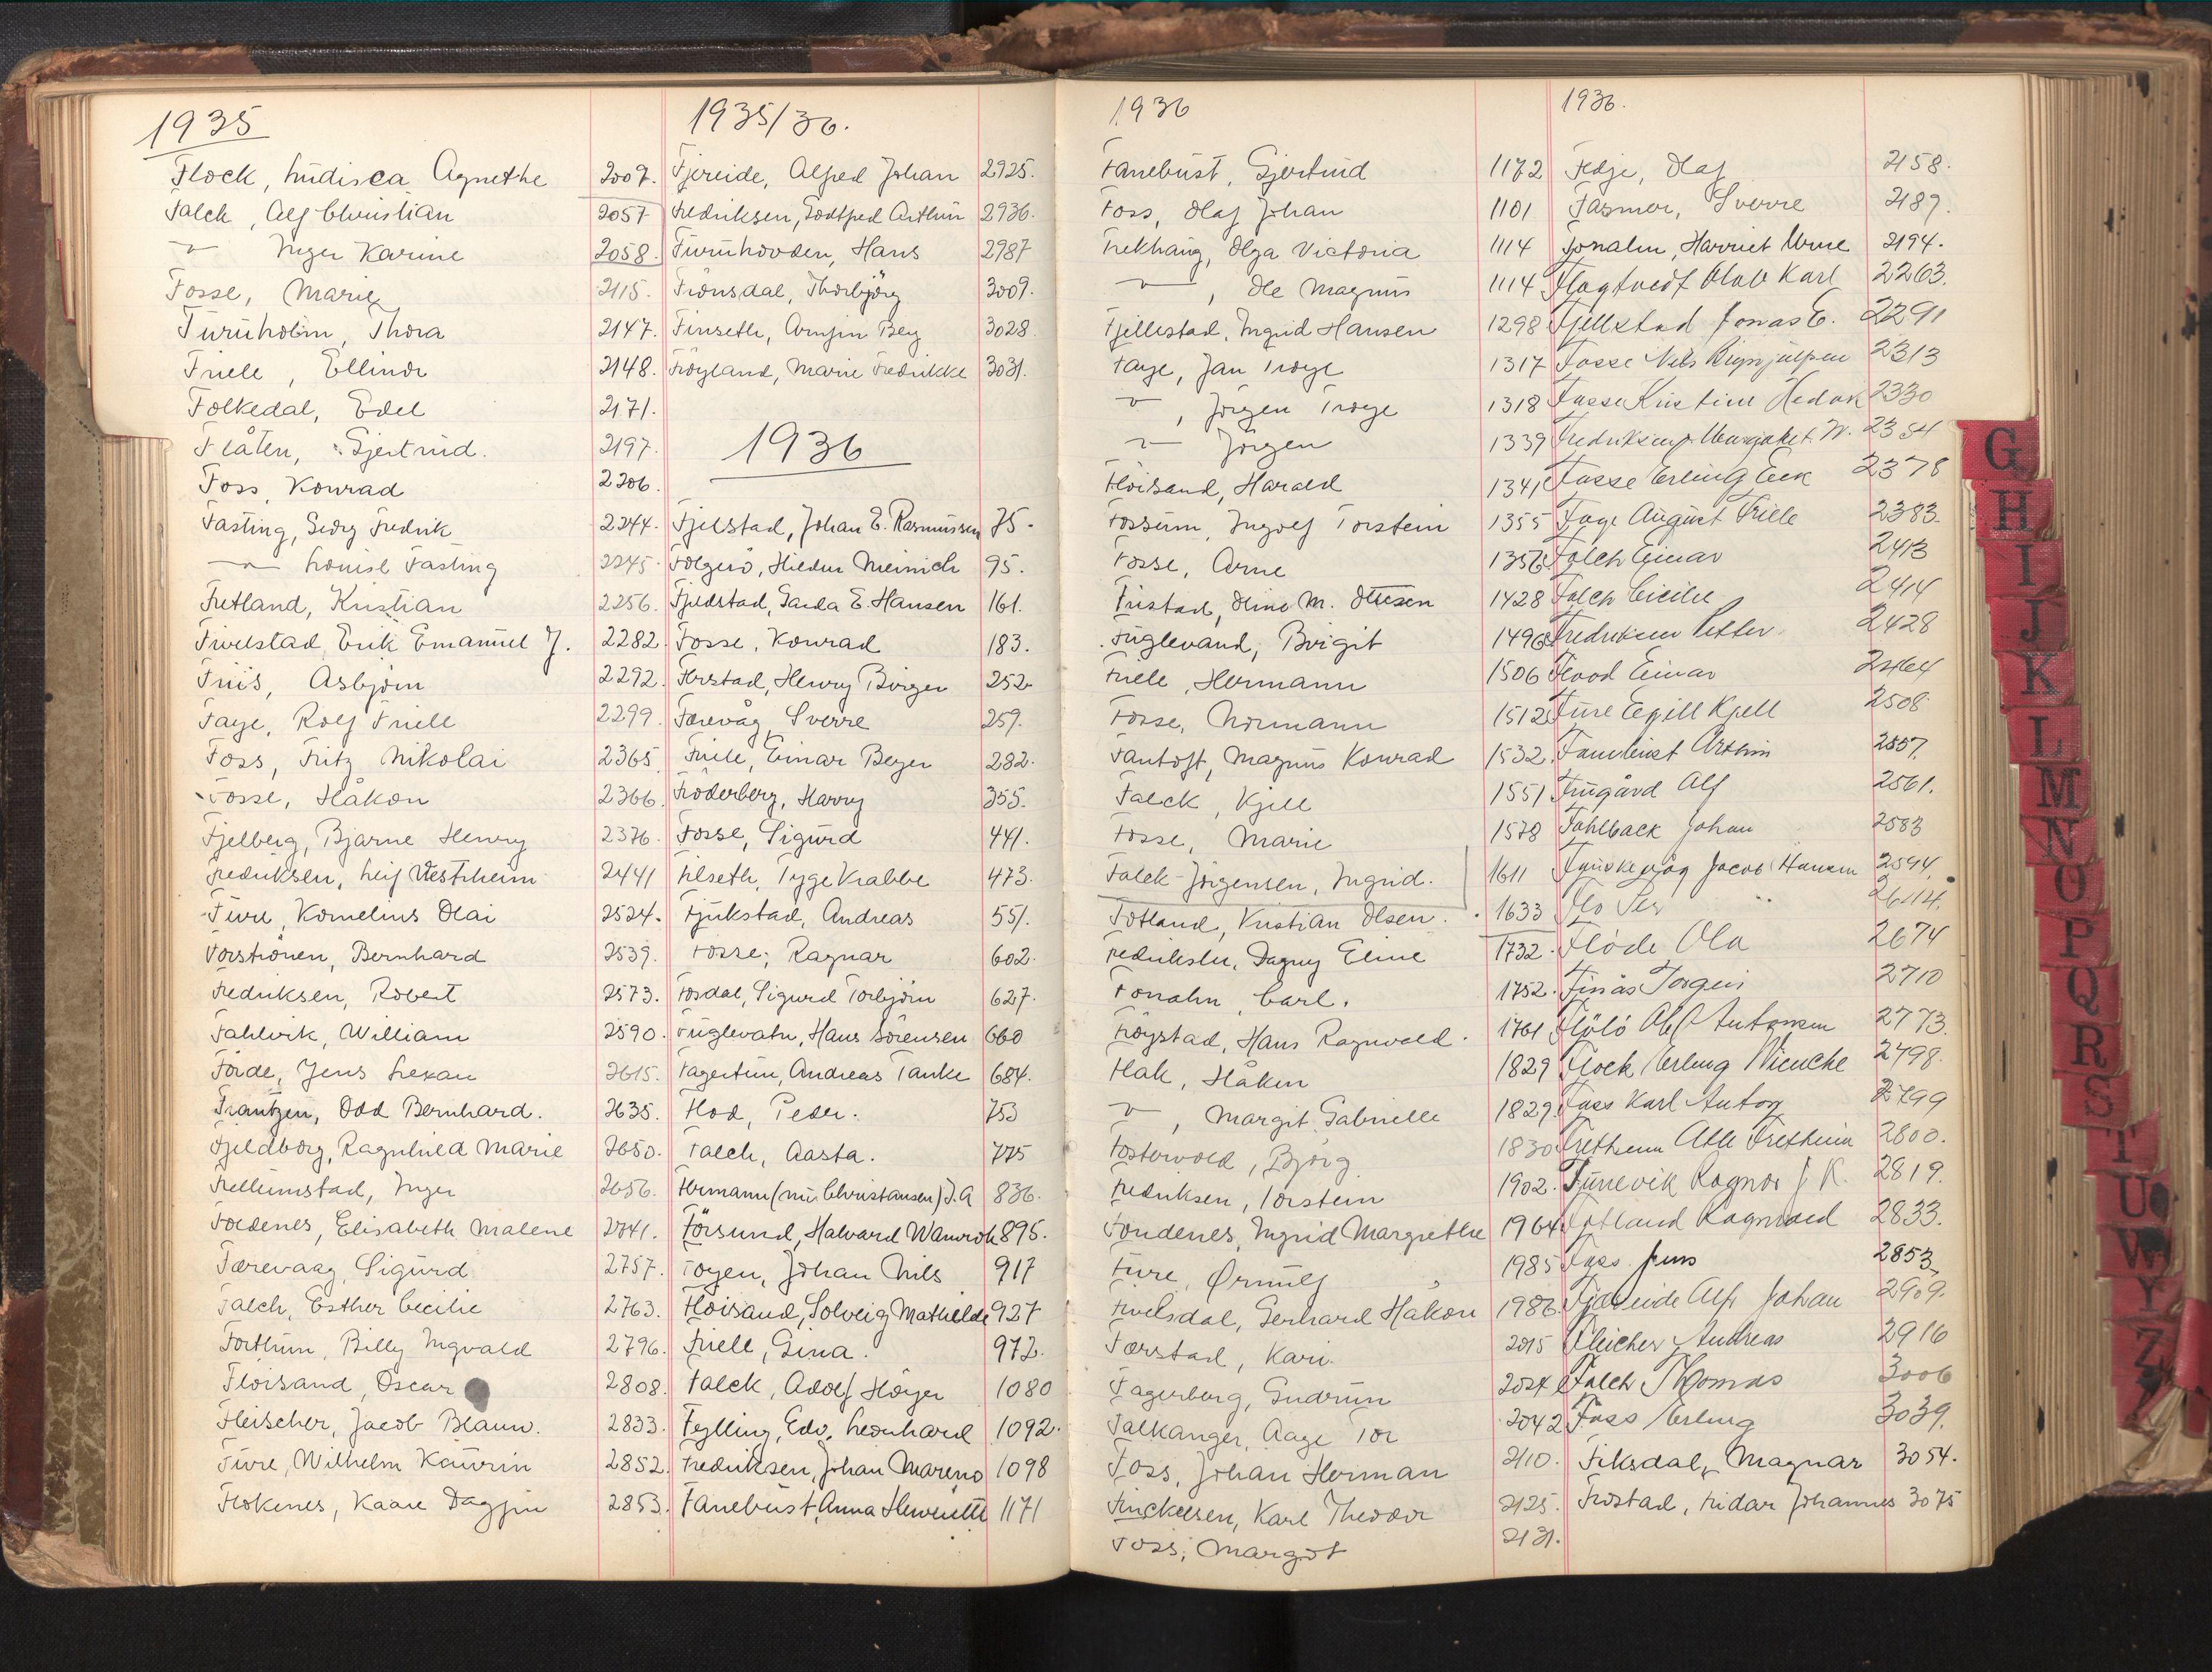 1935
Flock, Ludisca Agnethe 2007.
Falch, Alf Christian 2057
〃 Inger Karine 2058.
Fosse, Marie 2115.
Furuholm, Thora 2147.
Friele, Ellinor 2148.
Folkedal, Edel 2171.
Flåten, Gjertrud. 2197.
Foss, Konrad 2206.
Fasting, Georg Fredrik 2244.
〃 Louise Fasting 2245.
Fretland, Kristian 2256.
Fivelstad, Erik Emanuel J. 2282.
Friis, Asbjörn 2292.
Faye, Rolf Friele 2299.
Foss, Fritz Nikolai 2365
Fosse, Håkon 2366.
Fjelberg, Bjarne Henry 2376.
Fredriksen, Leif Westrheim 2441
Fure, Kornelius Olai 2524.
Forströnen, Bernhard 2539.
Fredriksen, Robert 2573.
Fahlvik, William 2590.
Förde, Jens Lexau 2615.
Frantzen, Odd Bernhard. 2635.
Fjeldborg, Ragnhild Marie 2650.
Fretlumstad, Inger 2656.
Foldenes, Elisabeth Malene 2741.
Færevaag, Sigurd 2757.
Falch, Esther Cecilie 2763.
Forthun, Billy Ingvald 2796.
Floisand, Oscar 2808.
Fleischer, Jacob Blauw. 2833.
Fure, Wilhelm Kaurin 2852.
Flokenes, Kaare Dagfin 2853.
1935/36.
Fjereide, Alfred Johan 2925.
Fredriksen, Godtfred Arthur 2936.
Furuhovden, Hans 2987
Frönsdal, Thorbjörg 3009.
Finseth, Arnfin Berg 3028
Fröyland, Marie Fredrikke 3031.
1936
Fjelstad, Johan E. Rasmussen 75.
Folgerö, Hildur Meinich 95.
Fjeldstad, Gerda E. Hansen 161.
Fosse, Konrad 183.
Forstad, Henry Birger 252
Færevåg, Sverre 259.
Friele, Einar Beyer 282.
Fröderberg, Harry 355.
Fosse, Sigurd 441.
Filseth, Tyge Krabbe 473.
Fjukstad, Andreas 551.
Fosse, Ragnar 602.
Fosdal, Sigurd Torbjörn 627.
Fuglevatn, Hans Sörensen 660
Fagertun, Andreas Tanke 684.
Flod, Peder. 753
Falch, Aasta. 775
Formann (nu Christansen) J.A 836.
Försund, Halvard Warnock 895.
Foyen, Johan Nils 917
Floisand, Solveig Mathilde 927
Friele, Gina. 972.
Falck, Adolf Höyer 1080
Fylling, Edv. Leonhard 1092.
Fredriksen, Johan Mareno 1098
Fanebust, Anna Henriette 1171
1936
Fanebust, Gjertrud 1172
Foss, Olaf Johan 1101
Frekhaug, Olga Victoria 1114
〃, Ole Magnus 1114
Fjellestad, Ingrid Hansen 1298
Faye, Jan Troye 1317
〃, Jörgen Troye 1318
〃 Jörgen 1339
Floisand, Harald 1341
Fossum, Ingolf Torstein 1355
Fosse, Arne 1356
Fristad, Oline M. Ottesen 1428
Fuglevand, Birgit 1496
Friele, Hermann 1506
Fosse, Normann 1512
Fantoft, Magnus Konrad 1532
Falck, Kjell 1551
Fosse, Marie 1578
Falck-Jörgensen, Ingrid. 1611
Fotland, Kristian Olsen. 1633
Fredriksen, Dagny Eline 1732.
Fonahn, Carl. 1752.
Fröystad, Hans Ragnvald. 1761
Flak, Håkon 1829
〃, Margit Gabrielle 1829.
Fostervold, Björg. 1830
Fredriksen, Torstein 1902.
Fondenes, Ingrid Margrethe 1964
Fure, Ørnulf 1985
Fivelsdal, Gerhard Håkon 1986.
Færstad, Kari. 2015
Fagerberg, Gudrun 2024
Falkanger, Aage Tor 2042
Foss, Johan Herman 2110.
Finckelsen, Karl Theodor 2125.
Foss, Margot 2131.
1936.
Fedje, Olaf 2158.
Fasmer, Sverre 2189.
Fonahn, Harriet Urne 2194.
Flagtvedt Olav Karl 2263.
Fjellstad Jonas E. 2291
Fosse Nils 2313
Fosse Kristine 2330
Fredriksen 2354
Fosse Erling Eek 2378
Faye August Friele 2383.
Falch Einar 2413
Falch Cicilie 2414
Fredriksen Petter 2428
Flood Einar 2464
Fure Egill Kjell 2508
Fanebust Arthur 2557.
Frugård Alf 2561.
Fahlback Johan 2583
Jacob Hansen 2594.
Flo Per 2644.
Flöde Ola 2674
Finås Torgeir 2710
Flölo Olaf Antonsen 2773.
Flock Erling Wiencke 2798.
Foss Karl Anton 2799
Fretheim Atle Fretheim 2800.
Furevik Ragnar J R. 2819.
Fotland Ragnvald 2833.
Foss Jens 2853
Fjæreide Alfr Johan 2909.
Fleicher Andreas 2916
Falch Thomas 3006
Foss Erling 3039.
Fiksdal, Magnar 3054.
Frostad, Fridar Johannes 3075
G
H
I
J
K
L
M
N
O
P
Q
R
S
T
U
W
Y
Z